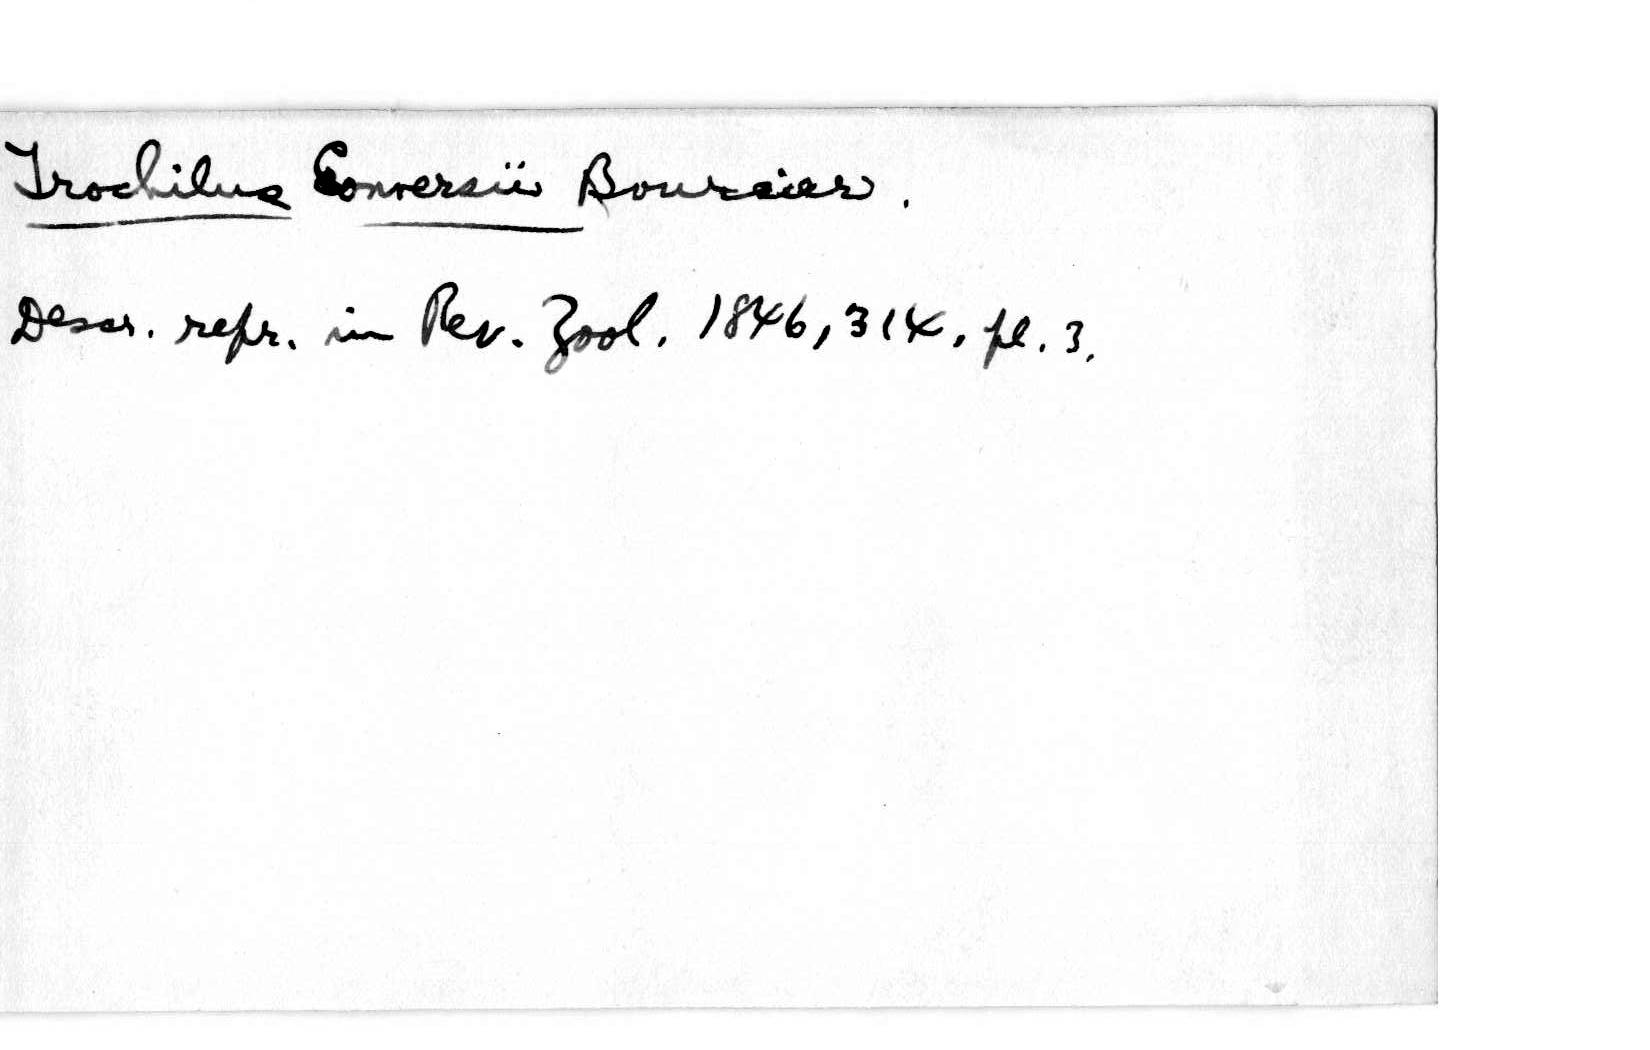 Trochilus Conversii Bourcier.
Descr. repr. in Rev. Zool. 1846, 314, pl. 3.